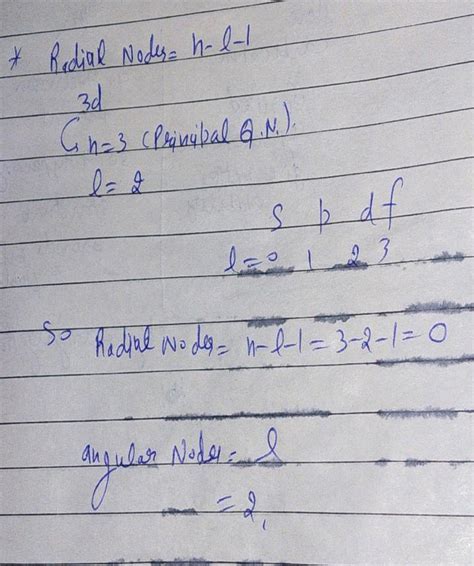 * Radial Nodes = n-l-1
3d
n=3 (Principal Q.N.).
l = 2
s p d f
l=0 1 2 3
So Radial Nodes = n-l-1 = 3-2-1 = 0
angular Nodes = l
= 2,